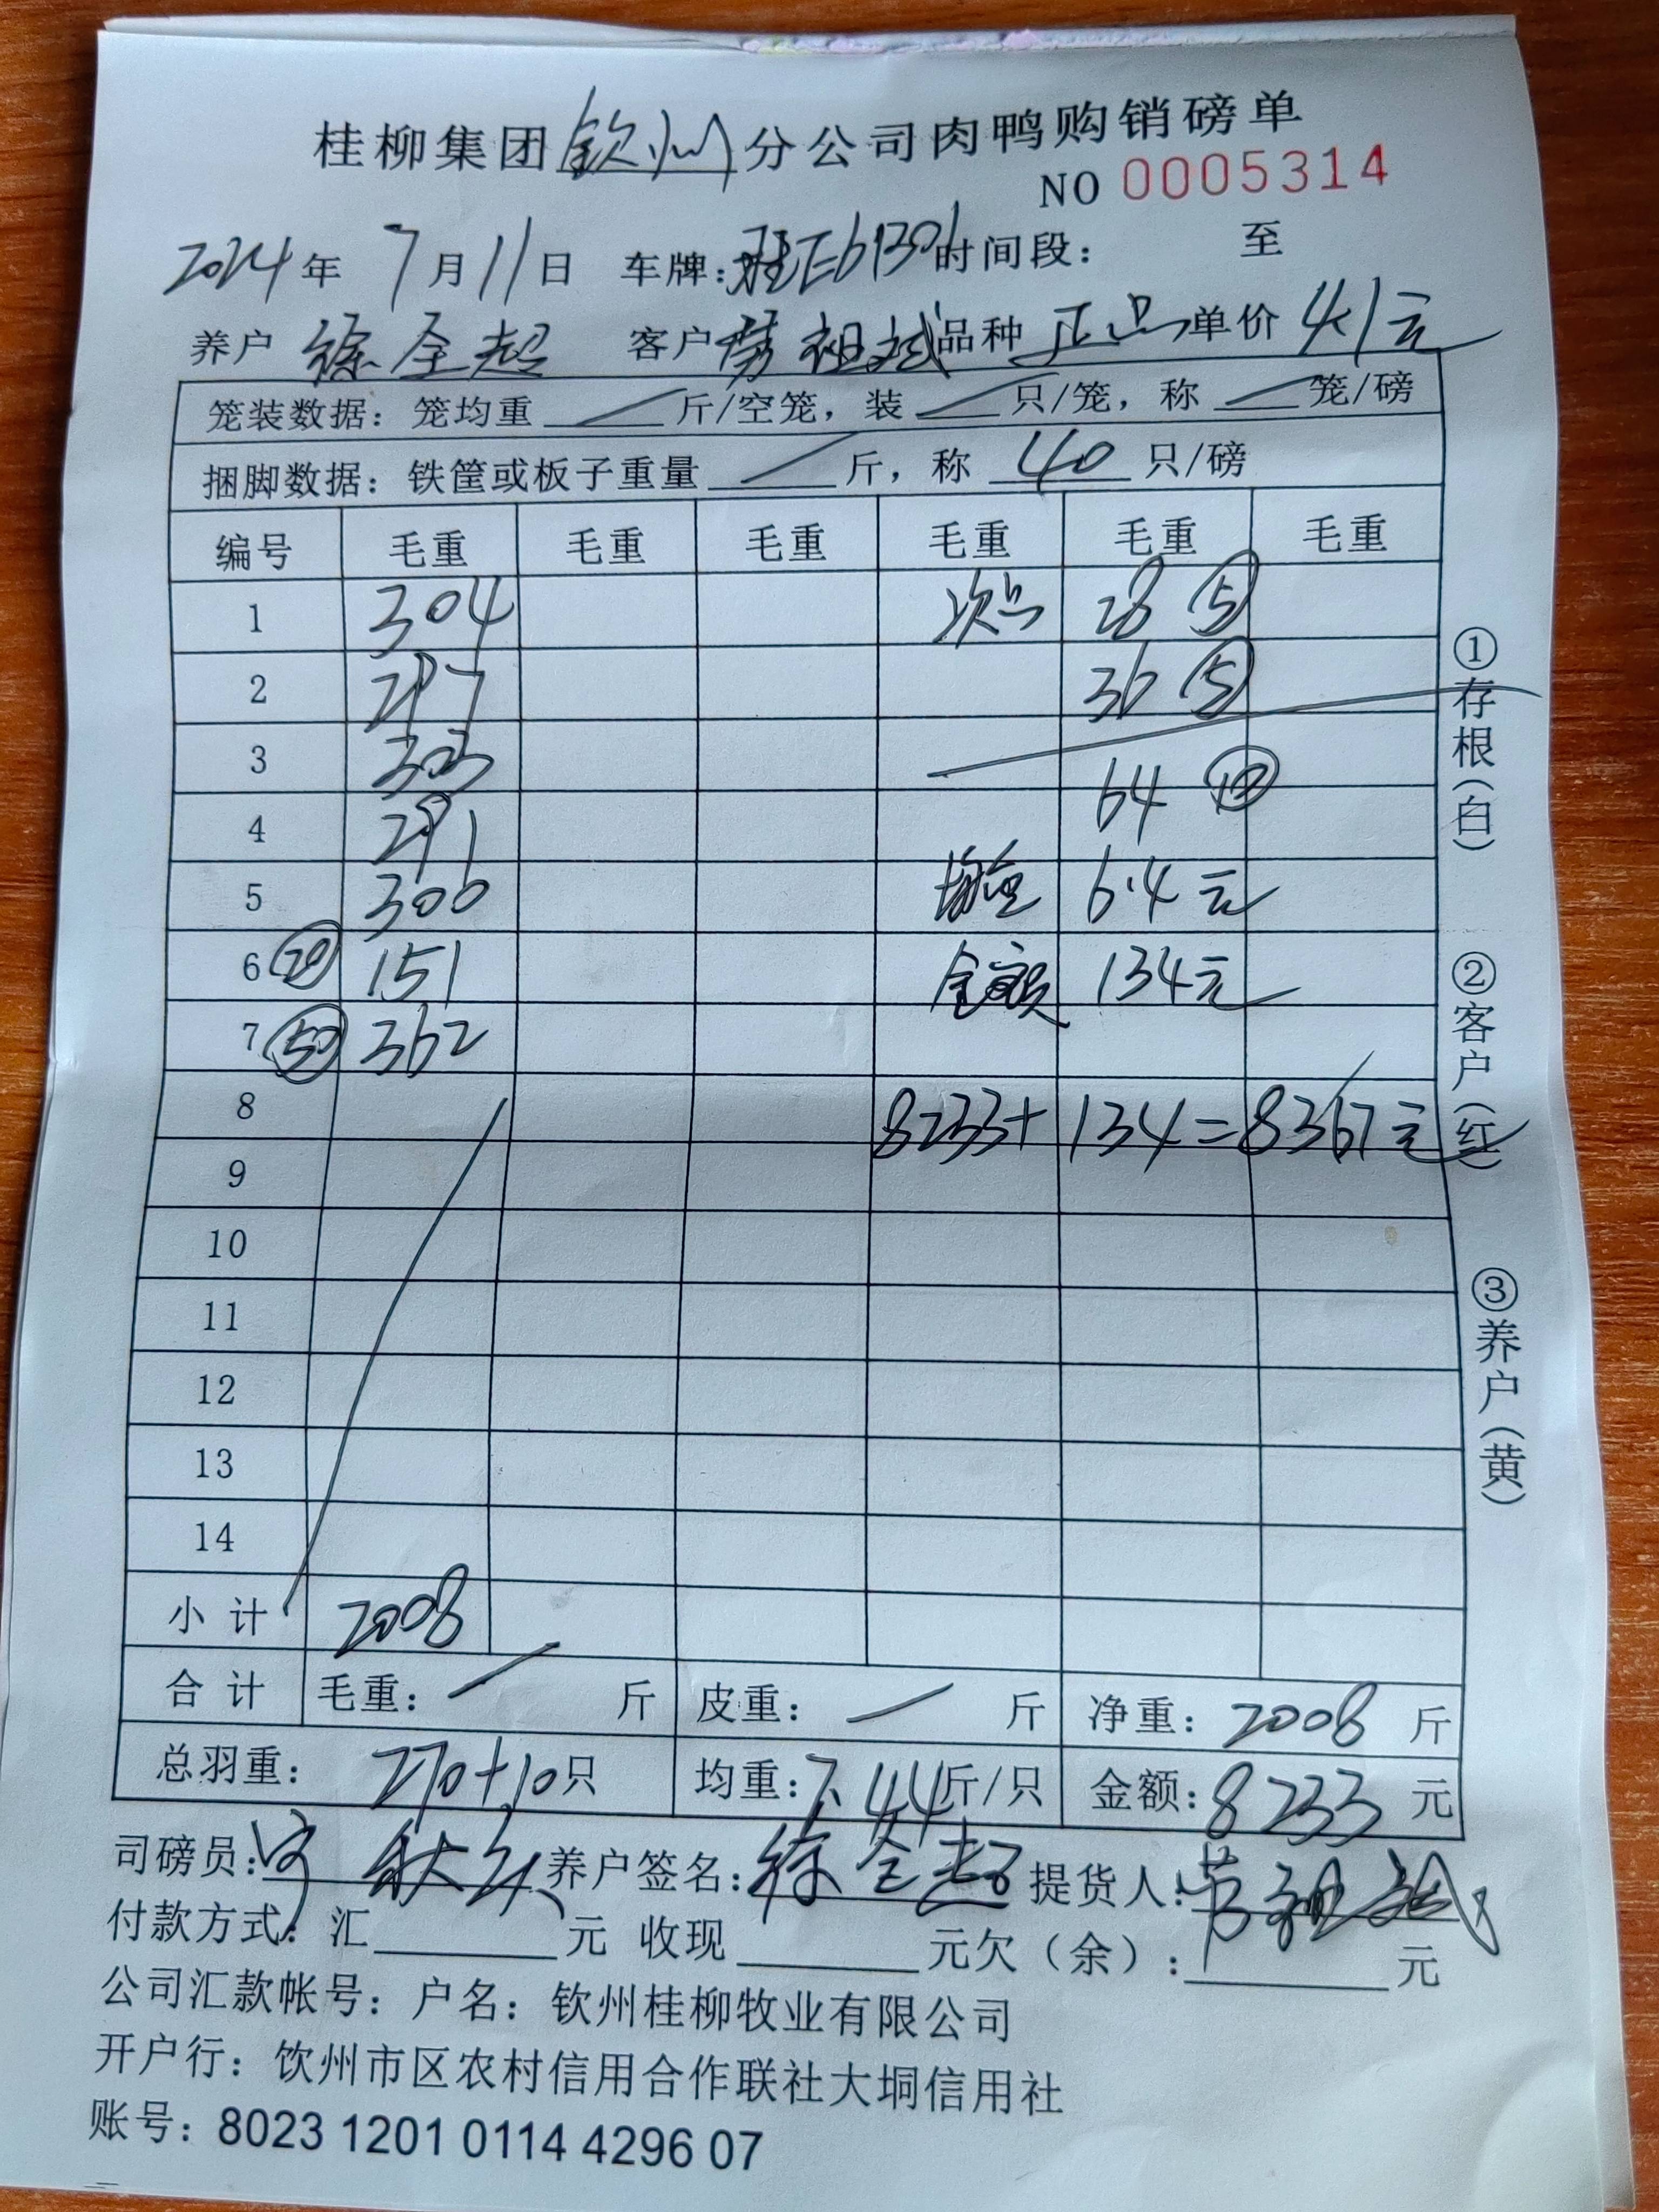 桂柳集团钦州分公司肉鸭购销磅单
NO 0005314
2024年 7月11日 车牌:桂E61301时间段: 至
养户 徐全超 客户 劳祖斌 品种 正品 单价 4.1元
笼装数据:笼均重 斤/空笼,装 只/笼,称 笼/磅
捆脚数据:铁筐或板子重量 斤,称 40 只/磅
编号 毛重 毛重 毛重 毛重 毛重 毛重
1 304 次品 28 ⑤
2 297 36 ⑤
3 303 64 ⑩
4 291
5 300 6.4元
6 ⑳ 151 金额 134元
7 ㊿ 362
8 8233+134=8367元
9
10
11
12
13
14
小计 2008
合计 毛重: 斤 皮重: 斤 净重:2008 斤
总羽重:270+10只 均重:7.44斤/只 金额:8233 元
司磅员: 养户签名:徐全超 提货人:劳祖斌
付款方式:汇 元 收现 元欠(余): 元
公司汇款帐号:户名:钦州桂柳牧业有限公司
开户行:饮州市区农村信用合作联社大垌信用社
账号:8023 1201 0114 4296 07
①存根(白) ②客户(红) ③养户(黄)